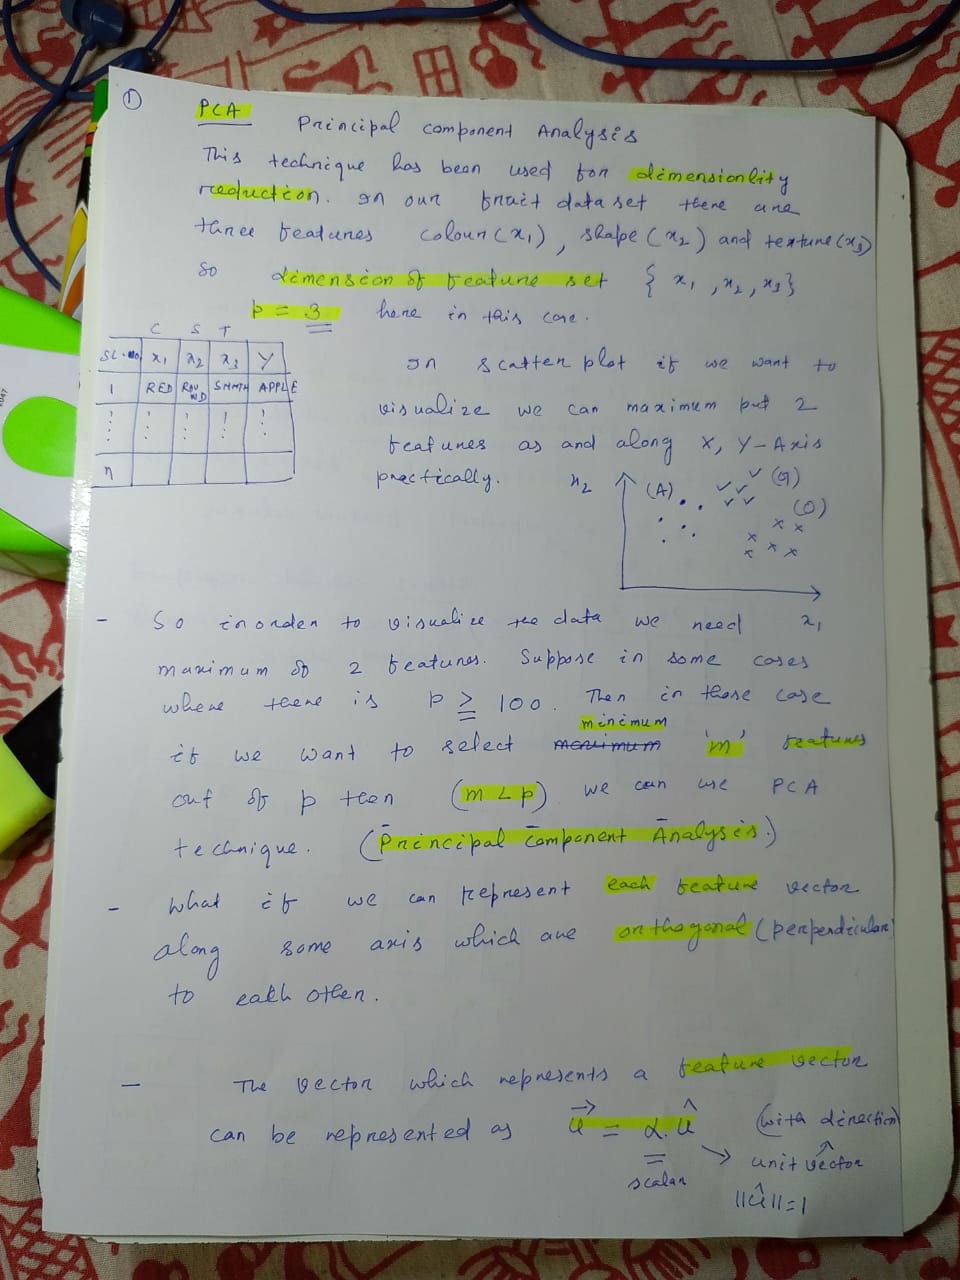 ①
PCA Principal component Analysis
This technique has been used for dimensionlity
reduction. In our fruit data set there are
three features colour (x₁), shape (x₂) and texture (x₃)
so dimension of feature set { x₁, x₂, x₃}
p = 3 here in this case.
C S T
SL.No x₁ x₂ x₃ Y
1 RED ROUND SMMTH APPLE
n
In scatter plot if we want to
visualize we can maximum put 2
features as and along X, Y-Axis
practically.
x₂ (A) (G)
(O)
x₁
- So inorder to visualize the data we need
maximum of 2 features. Suppose in some cases
where there is p ≥ 100. Then in those case
minimum
if we want to select maximum 'm' features
out of p then (m < p) we can use PCA
technique. (Principal Component Analysis.)
- What if we can represent each feature vector
along some axis which are orthogonal (perpendicular)
to each other.
- The vector which represents a feature vector
can be represented as u⃗ = α. û (with direction)
scalar unit vector
||û|| = 1